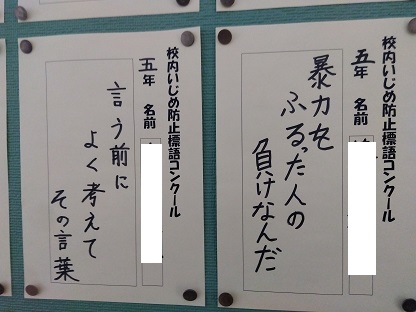 校内いじめ防止標語コンクール
五年 名前
暴力を
ふるった人の
負けなんだ
校内いじめ防止標語コンクール
五年 名前
言う前に
よく考えて
その言葉